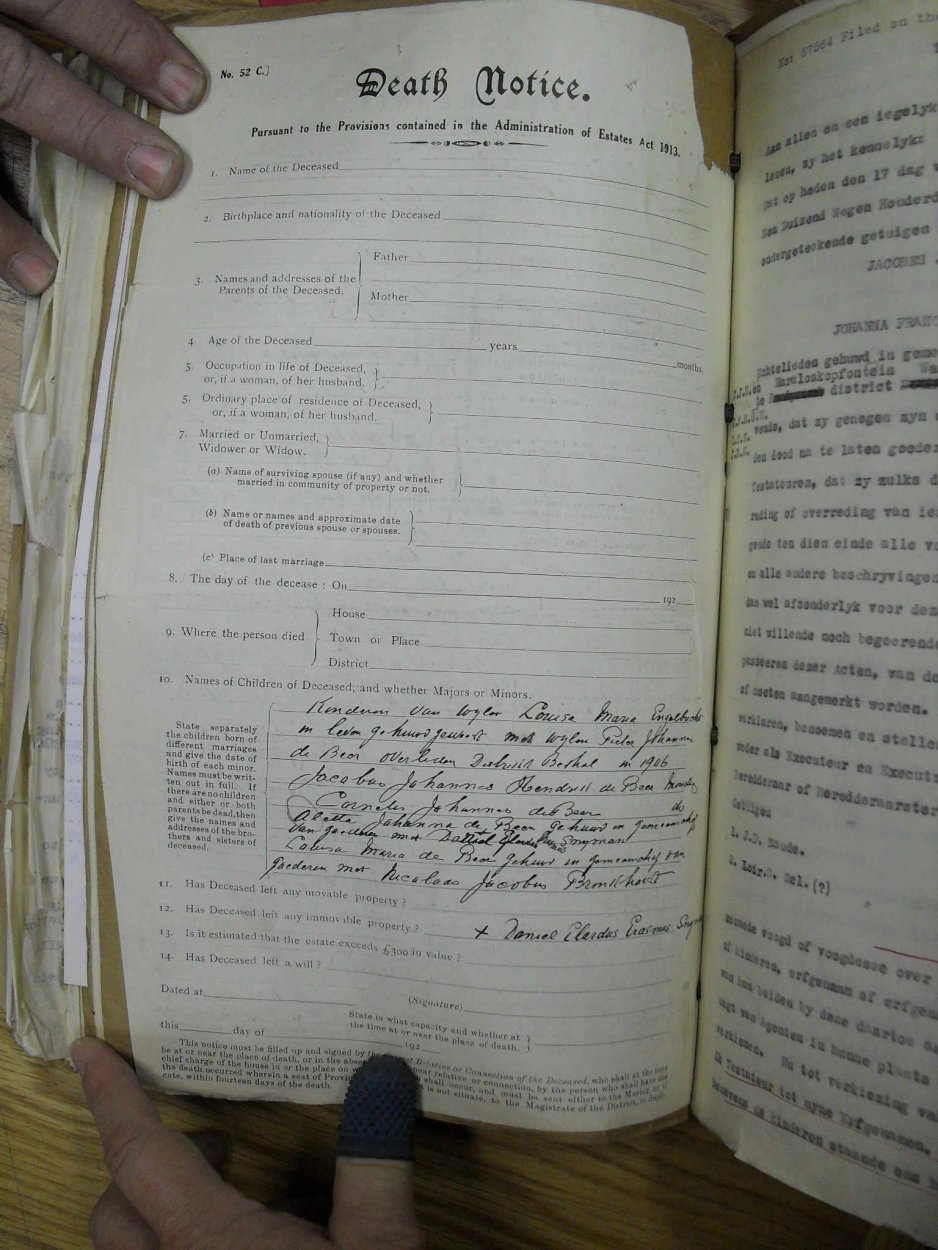 No. 52 C.]
Death Notice.
Pursuant to the Provisions contained in the Administration of Estates Act 1913.
1. Name of the Deceased
2. Birthplace and nationality of the Deceased
3. Names and addresses of the Parents of the Deceased.
Father
Mother
4. Age of the Deceased years months.
5. Occupation in life of Deceased,
or, if a woman, of her husband.
5. Ordinary place of residence of Deceased,
or, if a woman, of her husband.
7. Married or Unmarried,
Widower or Widow.
(a) Name of surviving spouse (if any) and whether
married in community of property or not.
(b) Name or names and approximate date
of death of previous spouse or spouses.
(c) Place of last marriage
8. The day of the decease : On 192
9. Where the person died
House
Town or Place
District
10. Names of Children of Deceased, and whether Majors or Minors.
State separately
the children born of
different marriages
and give the date of
birth of each minor.
Names must be writ-
ten out in full. If
there are no children
and either or both
parents be dead, then
give the names and
addresses of the bro-
thers and sisters of
deceased.
Kinderen van wylen Louisa Maria Engelbrecht
in leven gehuwd geweest met wylen Pieter Johannes
de Beer overleden District Bethal in 1906
Jacobus Johannes Hendrik de Beer
Cornelis Johannes de Beer do
Aletta Johanna de Beer gehuwd in gemeenschap
van goederen met Smyman
Louisa Maria de Beer gehuwd in gemeenschap van
goederen met Nicolaas Jacobus
11. Has Deceased left any movable property ?
12. Has Deceased left any immovable property ?
+ Daniel Elardus Erasmus
13. Is it estimated that the estate exceeds £300 in value ?
14. Has Deceased left a will ?
Dated at
(Signature)
State in what capacity and whether at
the time at or near the place of death.
this day of 192
This notice must be filled up and signed by Relative or Connection of the Deceased, who shall at the time
be at or near the place of death, or in the near relative or connection, by the person who shall have the
chief charge of the house in or the place on shall occur, and must be sent either to the Master, or, if
the death occurred wherein a seat of is not situate, to the Magistrate of the District, in dupli-
cate, within fourteen days of the death.
No: 57564 Filed on the
Aan allen en een iegelyk
lezen, zy het kennelyk:
Dat op heden den 17 dag
Een Duizend Negen Honderd
ondergeteekende getuigen
JACOBUS
JOHANNA FRANC
Echtelieden gehuwd in geme
Maraloskopfontein
te district
J.J.H.
vende, dat zy genegen zyn
den dood na te laten goeder
Testateuren, dat zy zulks d
rading of overreding van
gende ten dien einde alle
en alle andere beschryvingen
dan wel afzonderlyk voor
niet willende noch begeerende
passeeren dezer Acten, van de
of moeten aangemerkt worden.
verklaren, benoemen en stellen
weder als Executeur en
Beredderaar of Beredderaarster
Getuigen
1. J.D. Naude.
2. Nel. (?)
noemende voogd of voogdesse over
of kinderen, erfgenaam of erfgen
van hun beiden by deze daartoe
magt van Agenten in hunne plaats
verkiezen. Nu tot verkiezing
Testateur tot myne Erfgenamen,
benevens de kinderen staande ons